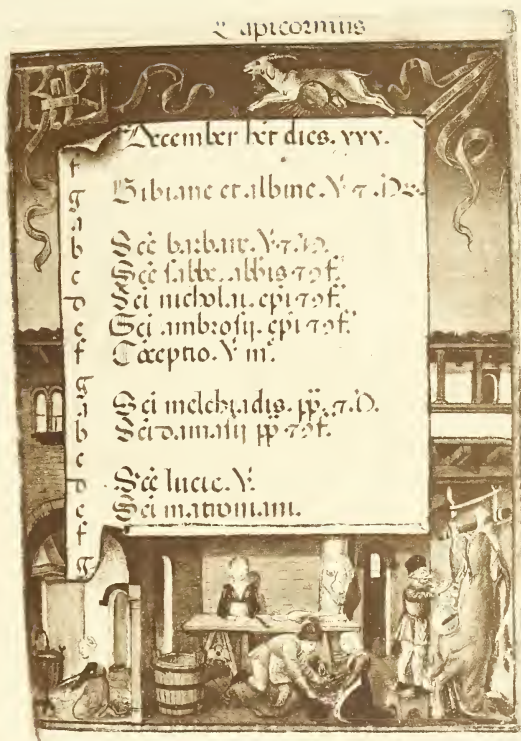 Capicornius
December het dies. xxx.
f
g Bibiane et albine. V. 7. D.
a
b Sce barbare. V. 7. D.
c Sce sabbe. abbis 7 9f.
D Sci nicholai. epi 7 9f.
e Sci ambrosij. epi 7 9f.
f Cceptio. V. m.
g
a Sci melchiadis. pp. 7. D.
b Sci damasij pp 7 9f.
c
D Sce lucie. V.
e Sci matroniani.
f
g